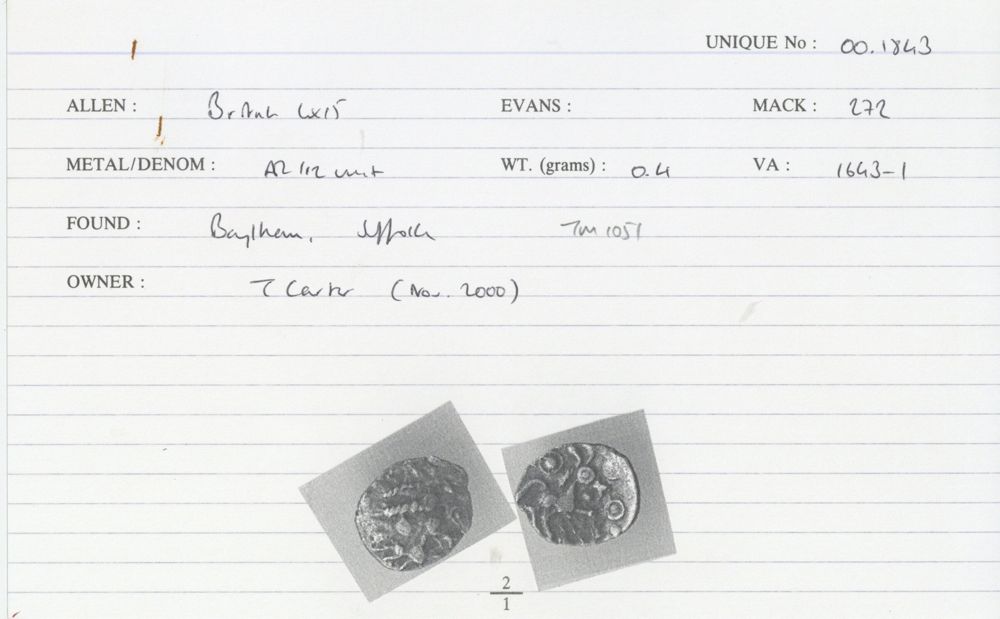 UNIQUE No : 00.1843
ALLEN : British Lx15 EVANS : MACK : 272
METAL/DENOM : AR 1/2 unit WT. (grams) : 0.4 VA : 1643-1
FOUND : Baylham, Suffolk TM 1051
OWNER : T Carter (Nov. 2000)
2
1